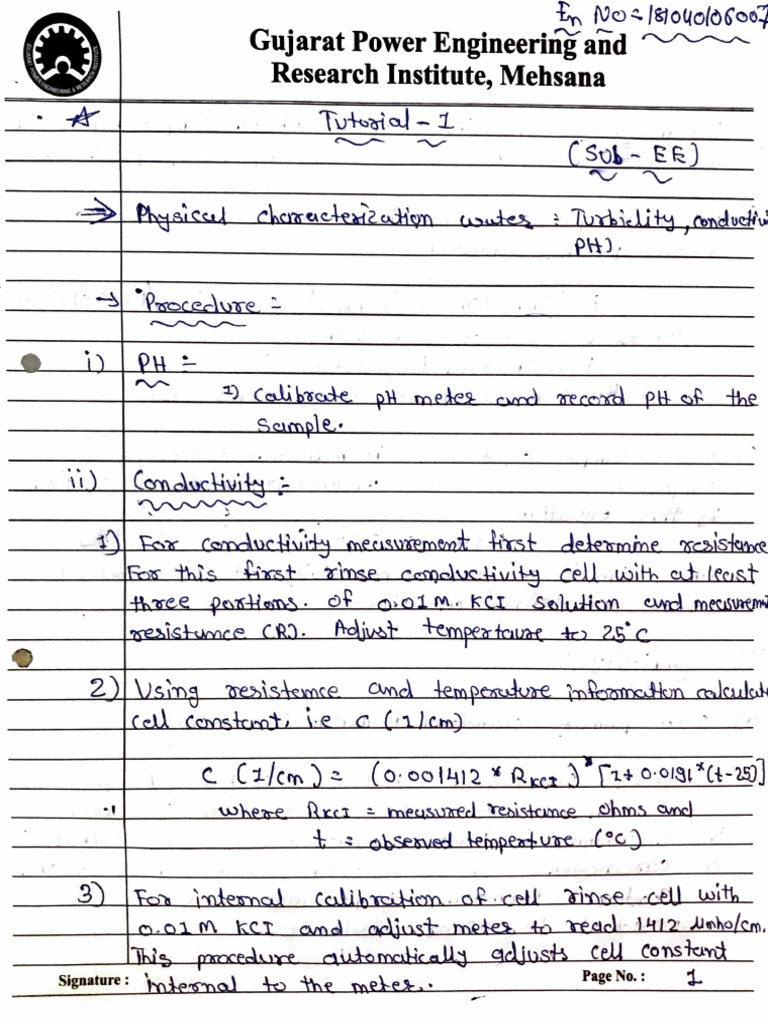 En No = 181040106007
Gujarat Power Engineering and
Research Institute, Mehsana
GUJARAT POWER ENGINEERING & RESEARCH INSTITUTE
Tutorial - 1
(Sub - EE)
⇒ Physical characterization water : Turbidity, conductivi
PH).
→ Procedure :-
i) PH :-
1) Calibrate pH meter and record PH of the
sample.
ii) Conductivity :-
1) For conductivity measurement first determine resistance
For this first rinse conductivity cell with at least
three portions of 0.01M. KCI solution and measurem
resistance (R). Adjust tempertaure to 25°C
2) Using resistance and temperature information calculate
cell constant, i.e C (1/cm)
C (1/cm) = (0.001412 * RKCI) * [1+ 0.0191*(t-25)]
where RKCI = measured resistance, ohms and
t = observed temperture (°C)
3) For internal calibraition of cell rinse cell with
0.01M KCI and adjust meter to read 1412 μmho/cm.
This procedure automatically adjusts cell constant
internal to the meter.
Signature : Page No. : 1